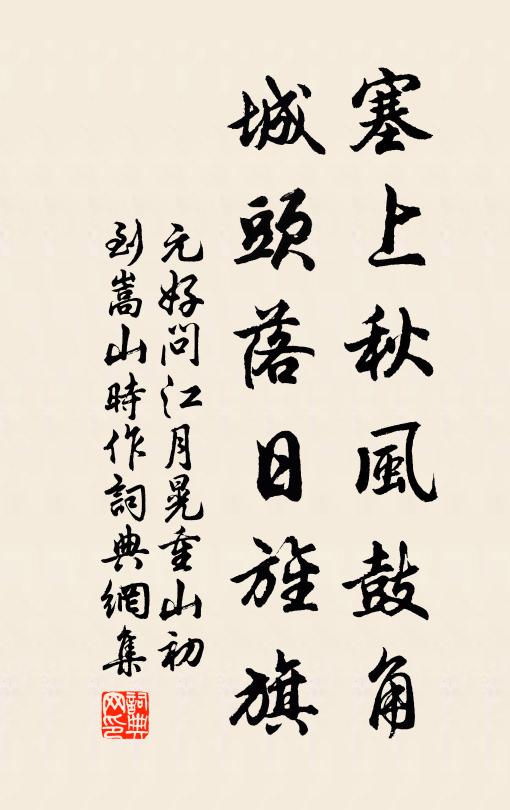 塞上秋風鼓角
城頭落日旌旗
元好問江月晃重山初
到嵩山時作詞典網集
詞典網印